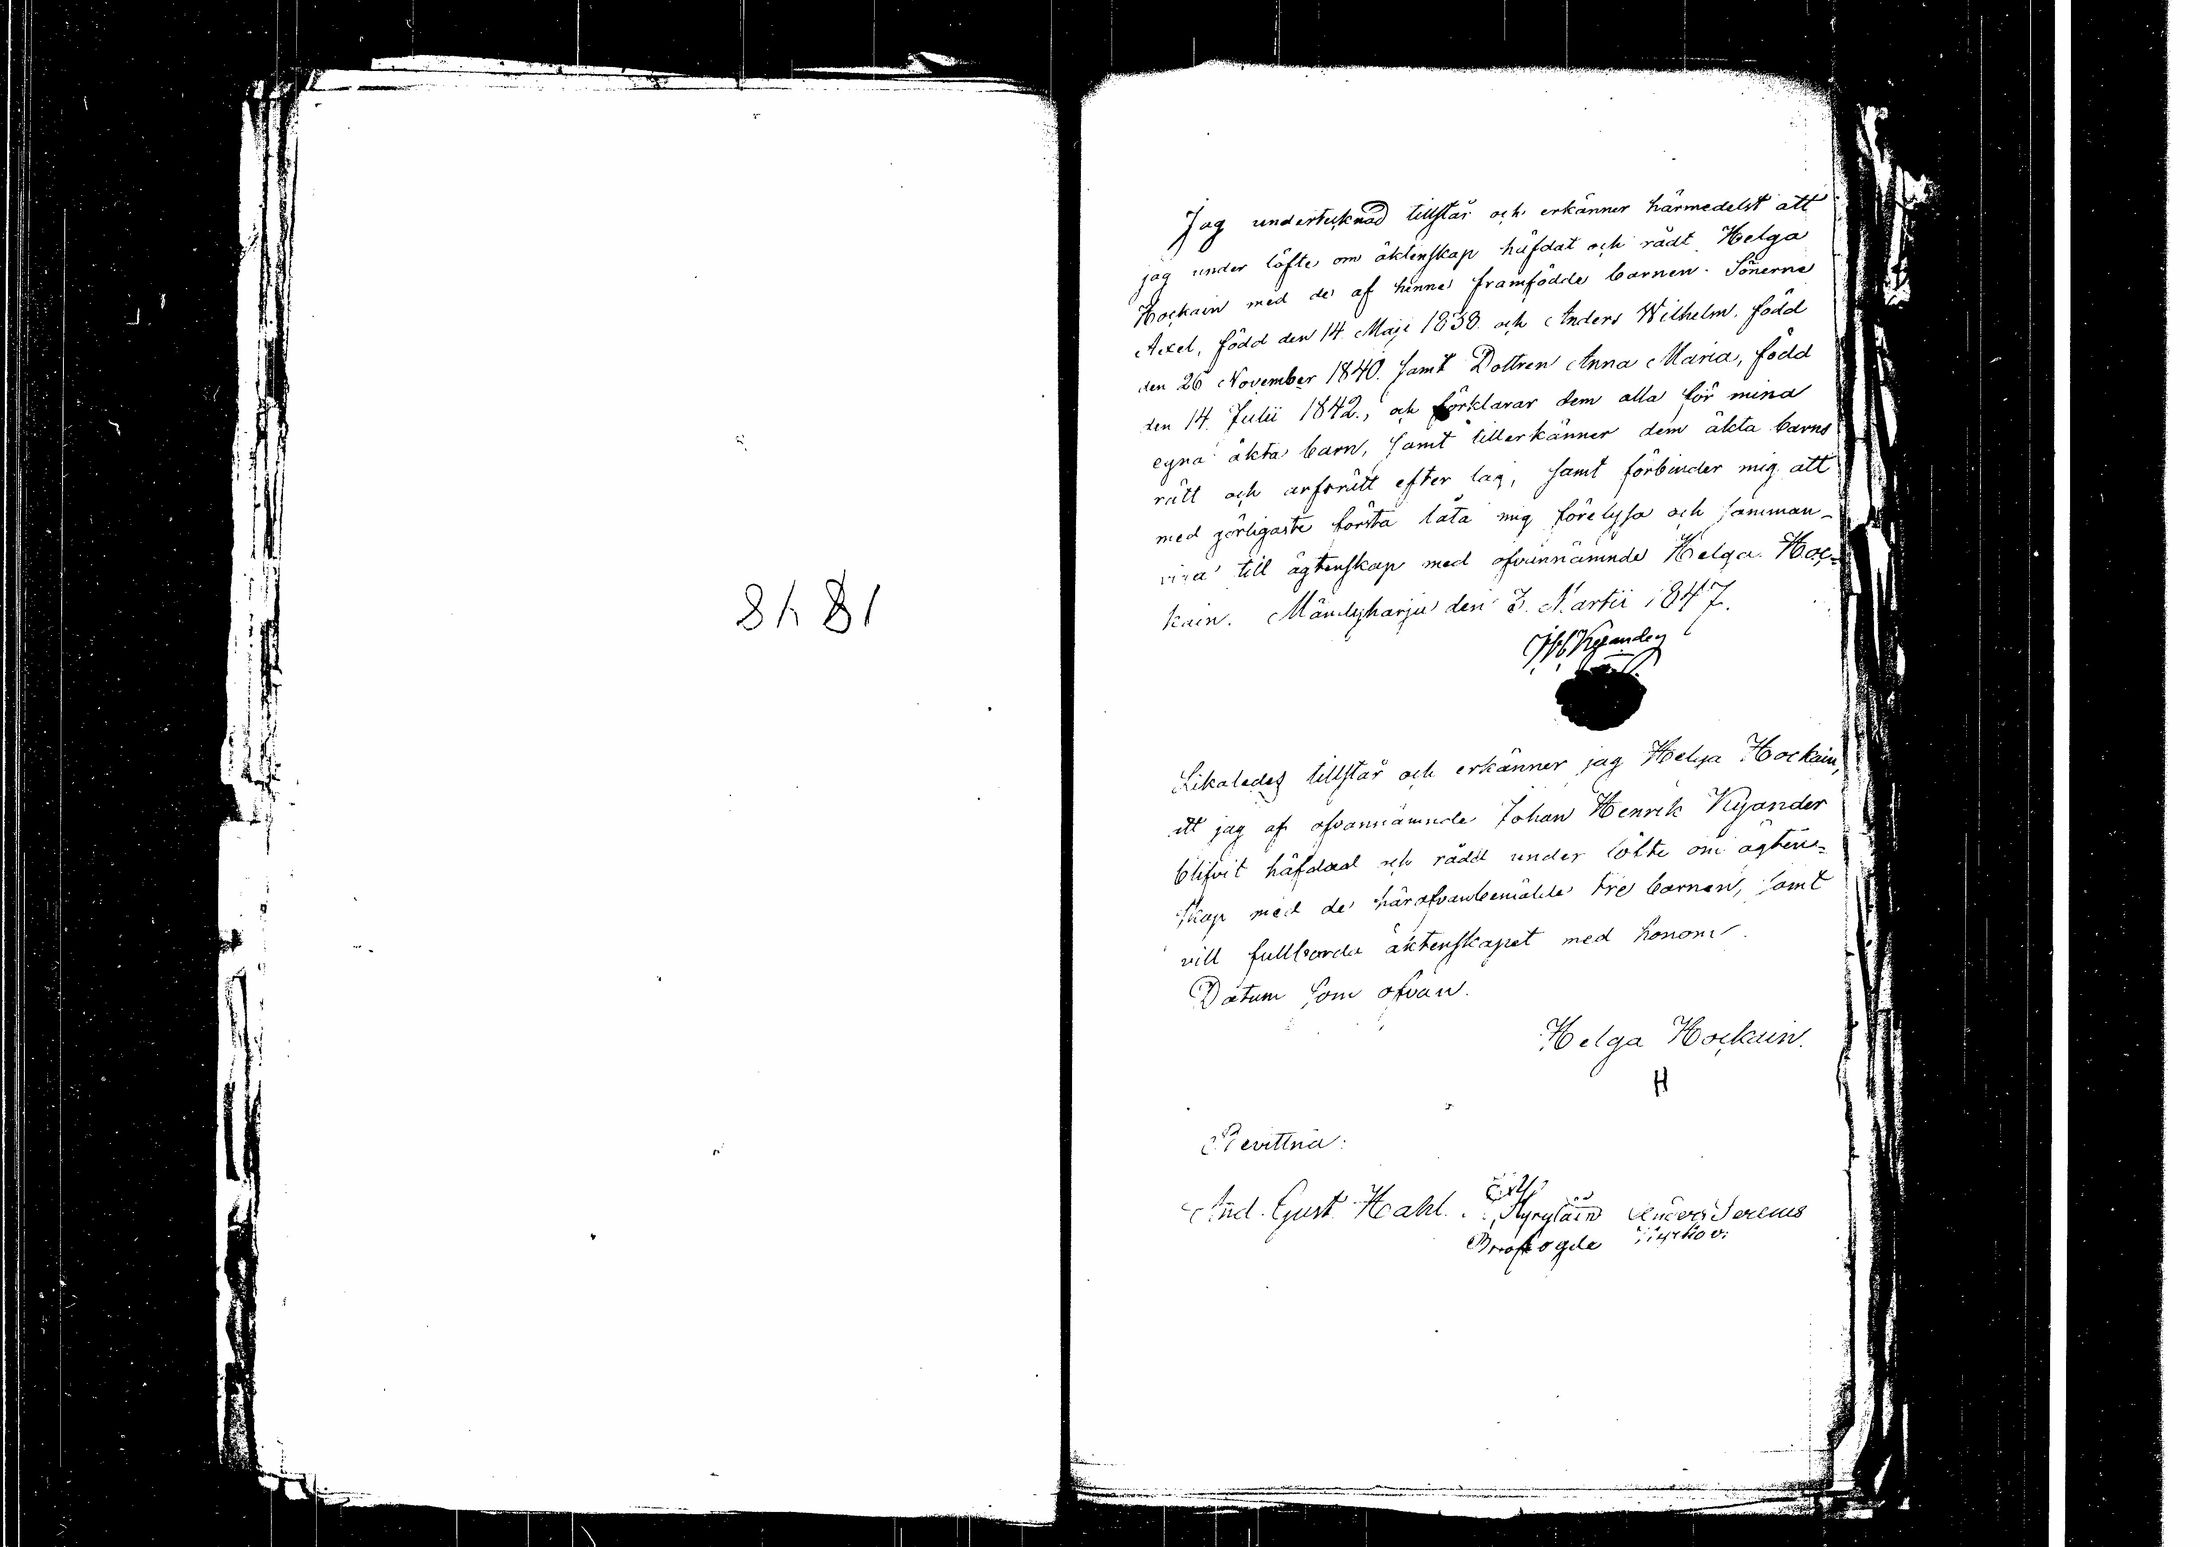 1848
Jag undertecknad tillstår och erkänner härmedelst att
jag under löfte om äktenskap häfdat och rådt Helga
Hockain med de af henne framfödde barnen. Sönerne
Axel, född den 14 Maji 1838 och Anders Wilhelm, född
den 26 November 1840. samt Dottren Anna Maria, född
den 14. Julii 1842., och förklarar dem alla för mina
egna äkta barn, samt tillerkänner dem äkta barns
rätt och arfsrätt efter lag, samt förbinder mig att
med görligaste första låta mig förelysa och samman-
viga till ägtenskap med ofvannämnde Helga Hoc-
kain. Mändyharju den 3. Martii 1847.
Kyander
Likaledes tillstår och erkänner jag Helga Hockain,
att jag af ofvannämnde Johan Henrik Kyander
blifvit häfdad och rådd under löfte om ägten-
skap med de härofvanbemälde tre barnen, samt
vill fullborda äktenskapet med honom.
Datum som ofvan.
Helga Hockain.
H
Bevittna:
And. Gust. Hahl. Kyryläin Anders